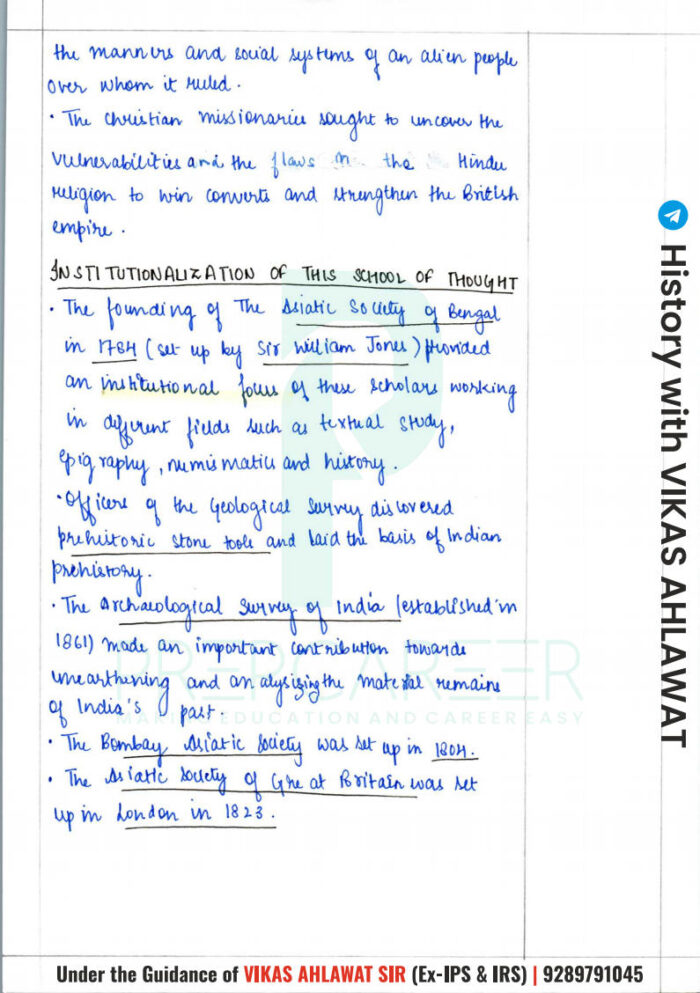 the manners and social systems of an alien people
over whom it ruled.
• The christian missionaries sought to uncover the
vulnerabilities and the flaws in the Hindu
religion to win converts and strengthen the British
empire.
INSTITUTIONALIZATION OF THIS SCHOOL OF THOUGHT
• The founding of The Asiatic Society of Bengal
in 1784 (set up by Sir William Jones) provided
an institutional focus of these scholars working
in different fields such as textual study,
epigraphy, numismatics and history.
• Officers of the Geological Survey discovered
prehistoric stone tools and laid the basis of Indian
prehistory.
• The Archaeological Survey of India (established in
1861) made an important contribution towards
unearthening and analysizing the material remains
of India's past.
• The Bombay Asiatic Society was set up in 1804.
• The Asiatic Society of Great Britain was set
up in London in 1823.
PREPCAREER
MAKING EDUCATION AND CAREER EASY
History with VIKAS AHLAWAT
Under the Guidance of VIKAS AHLAWAT SIR (Ex-IPS & IRS) | 9289791045